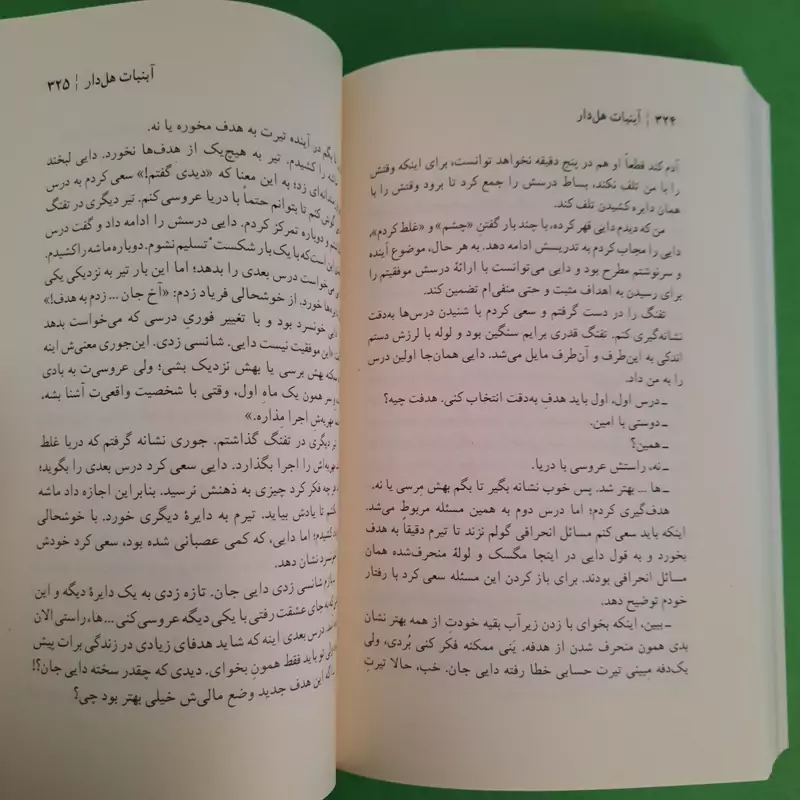 ۳۲۴ | آبنبات هل‌دار
آدم کند قطعاً او هم در پنج دقیقه نخواهد توانست، برای اینکه وقتش
را با من تلف نکند، بساط درسش را جمع کرد تا برود وقتش را با
همان دایره کشیدن تلف کند.
من که دیدم دایی قهر کرده، با چند بار گفتن «چشم» و «غلط کردم»،
دایی را مجاب کردم به تدریسش ادامه دهد. به هر حال، موضوع آینده
و سرنوشتم مطرح بود و دایی می‌توانست با ارائهٔ درسش موفقیتم را
برای رسیدن به اهداف مثبت و حتی منفی‌ام تضمین کند.
تفنگ را در دست گرفتم و سعی کردم با شنیدن درس‌ها به‌دقت
نشانه‌گیری کنم. تفنگ قدری برایم سنگین بود و لوله با لرزش دستم
اندکی به این‌طرف و آن‌طرف مایل می‌شد. دایی همان‌جا اولین درس
را به من داد.
ـ درس اول، اول باید هدفِ به‌دقت انتخاب کنی. هدفت چیه؟
ـ دوستی با امین.
ـ همین؟
ـ نه، راستش عروسی با دریا.
ـ ها ... بهتر شد. پس خوب نشانه بگیر تا بگم بهش مِرسی یا نه.
هدف‌گیری کردم؛ اما درس دوم به همین مسئله مربوط می‌شد.
اینکه باید سعی کنم مسائل انحرافی گولم نزند تا تیرم دقیقاً به هدف
بخورد و به قول دایی در اینجا مگسک و لولهٔ منحرف‌شده همان
مسائل انحرافی بودند. برای باز کردن این مسئله سعی کرد با رفتار
خودم توضیح دهد.
ـ ببین، اینکه بخوای با زدن زیرآب بقیه خودتِ از همه بهتر نشان
بدی همون منحرف شدن از هدفه. یَنی ممکنه فکر کنی بُردی، ولی
یک‌دفه میبینی تیرت حسابی خطا رفته دایی جان. خب، حالا تیرتِ
آبنبات هل‌دار | ۳۲۵
بگم در آینده تیرت به هدف مخوره یا نه.
را کشیدم. تیر به هیچ‌یک از هدف‌ها نخورد. دایی لبخند
زد؛ به این معنا که «دیدی گفتم!» سعی کردم به درس
کنم تا بتوانم حتماً با دریا عروسی کنم. تیر دیگری در تفنگ
و دوباره تمرکز کردم. دایی درسش را ادامه داد و گفت درس
این است که با یک بار شکست تسلیم نشوم. دوباره ماشه را کشیدم.
می‌خواست درس بعدی را بدهد؛ اما این بار تیر به نزدیکی یکی
خورد. از خوشحالی فریاد زدم: «آخ جان ... زدم به هدف!»
دایی خونسرد بود و با تغییر فوریِ درسی که می‌خواست بدهد
«این موفقیت نیست دایی. شانسی زدی. این‌جوری معنی‌ش اینه
بهش برسی یا بهش نزدیک بشی؛ ولی عروسی‌ت به بادی
همون یک ماهِ اول، وقتی با شخصیت واقعی‌ت آشنا بشه،
مهریه‌ش اجرا مِذاره.»
تیر دیگری در تفنگ گذاشتم. جوری نشانه گرفتم که دریا غلط
مهریه‌اش را اجرا بگذارد. دایی سعی کرد درس بعدی را بگوید؛
هرچه فکر کرد چیزی به ذهنش نرسید. بنابراین اجازه داد ماشه
تا یادش بیاید. تیرم به دایرهٔ دیگری خورد. با خوشحالی
اما دایی، که کمی عصبانی شده بود، سعی کرد خودش
نشان دهد.
شانسی زدی دایی جان. تازه زدی به یک دایرهٔ دیگه و این
به جای عشقت رفتی با یکی دیگه عروسی کنی ... ها، راستی الان
درس بعدی اینه که شاید هدفای زیادی در زندگی برات پیش
تو باید فقط همونِ بخوای. دیدی که چقدر سخته دایی جان؟!
این هدف جدید وضع مالی‌ش خیلی بهتر بود چی؟